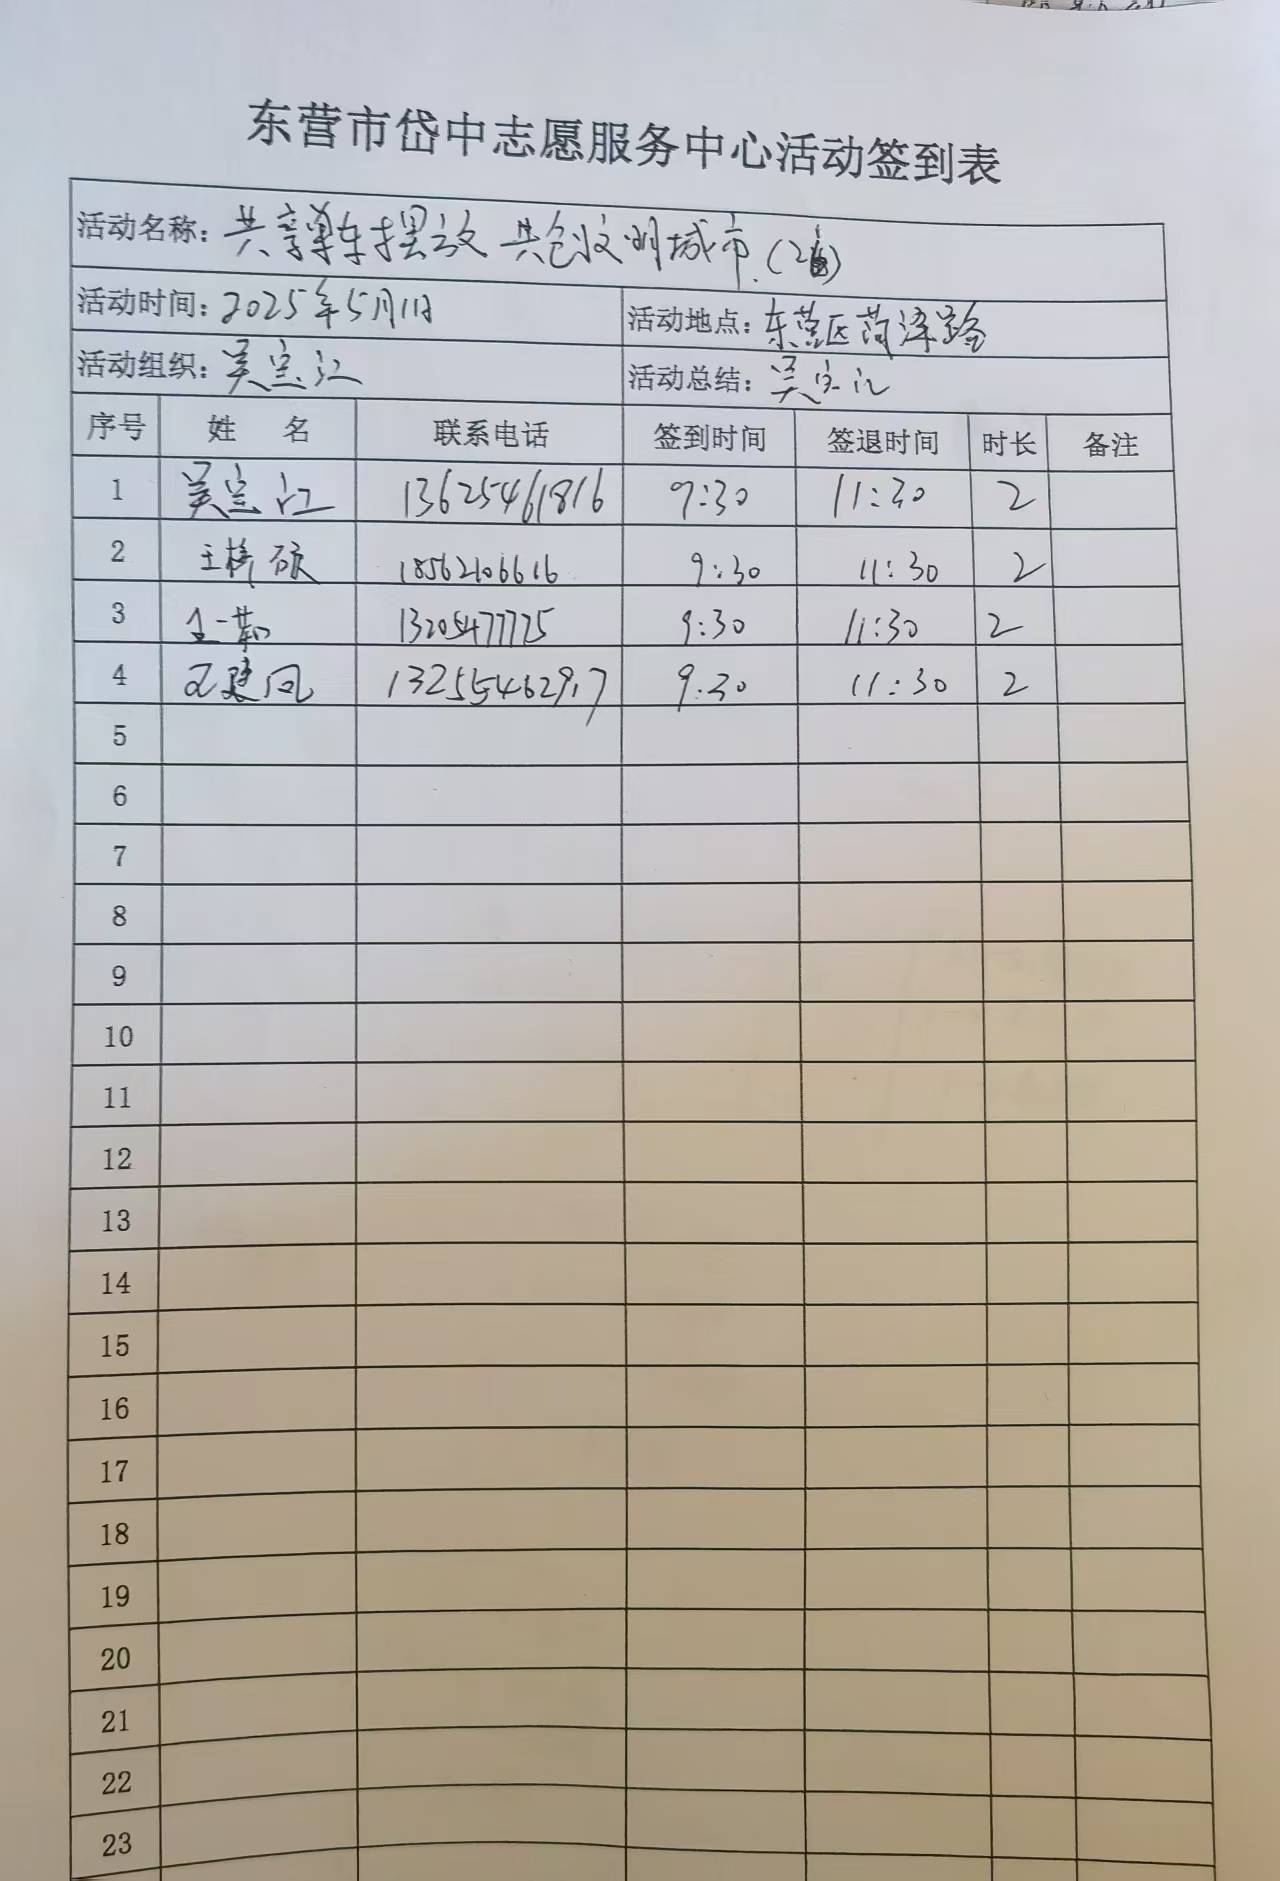 东营市岱中志愿服务中心活动签到表
活动名称: 共享单车摆放 共创文明城市.
活动时间: 2025年5月1日 活动地点: 东营区菏泽路
活动组织: 吴宝江 活动总结: 吴宝江
序号 姓 名 联系电话 签到时间 签退时间 时长 备注
1 吴宝江 13625461816 9:30 11:30 2
2 王 18562106616 9:30 11:30 2
3 一 13205477725 9:30 11:30 2
4 建凤 13255462917 9:30 11:30 2
5
6
7
8
9
10
11
12
13
14
15
16
17
18
19
20
21
22
23